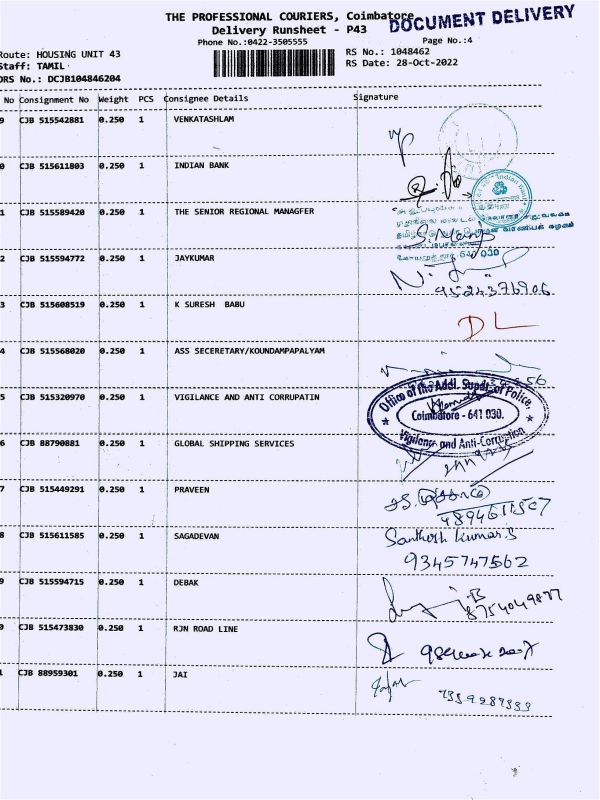 THE PROFESSIONAL COURIERS, Coimbatore
DOCUMENT DELIVERY
Delivery Runsheet - P43
Page No.:4
Phone No.:0422-3505555
Route: HOUSING UNIT 43
RS No.: 1048462
Staff: TAMIL
RS Date: 28-Oct-2022
DRS No.: DCJB104846204
No Consignment No Weight PCS Consignee Details Signature
9 CJB 515542881 0.250 1 VENKATASHLAM
0 CJB 515611803 0.250 1 INDIAN BANK
Indian Bank
1 CJB 515589420 0.250 1 THE SENIOR REGIONAL MANAGFER
641 030
2 CJB 515594772 0.250 1 JAYKUMAR
9524376906
3 CJB 515608519 0.250 1 K SURESH BABU
DL
4 CJB 515568020 0.250 1 ASS SECERETARY/KOUNDAMPAPALYAM
5 CJB 515320970 0.250 1 VIGILANCE AND ANTI CORRUPATIN
Office of the Addl. Supdt. of Police,
Coimbatore - 641 030.
Vigilance and Anti-Corruption
6 CJB 88790881 0.250 1 GLOBAL SHIPPING SERVICES
7 CJB 515449291 0.250 1 PRAVEEN
8 CJB 515611585 0.250 1 SAGADEVAN
Santhosh Kumar.S
9345747562
9 CJB 515594715 0.250 1 DEBAK
8754049877
0 CJB 515473830 0.250 1 RJN ROAD LINE
1 CJB 88959301 0.250 1 JAI